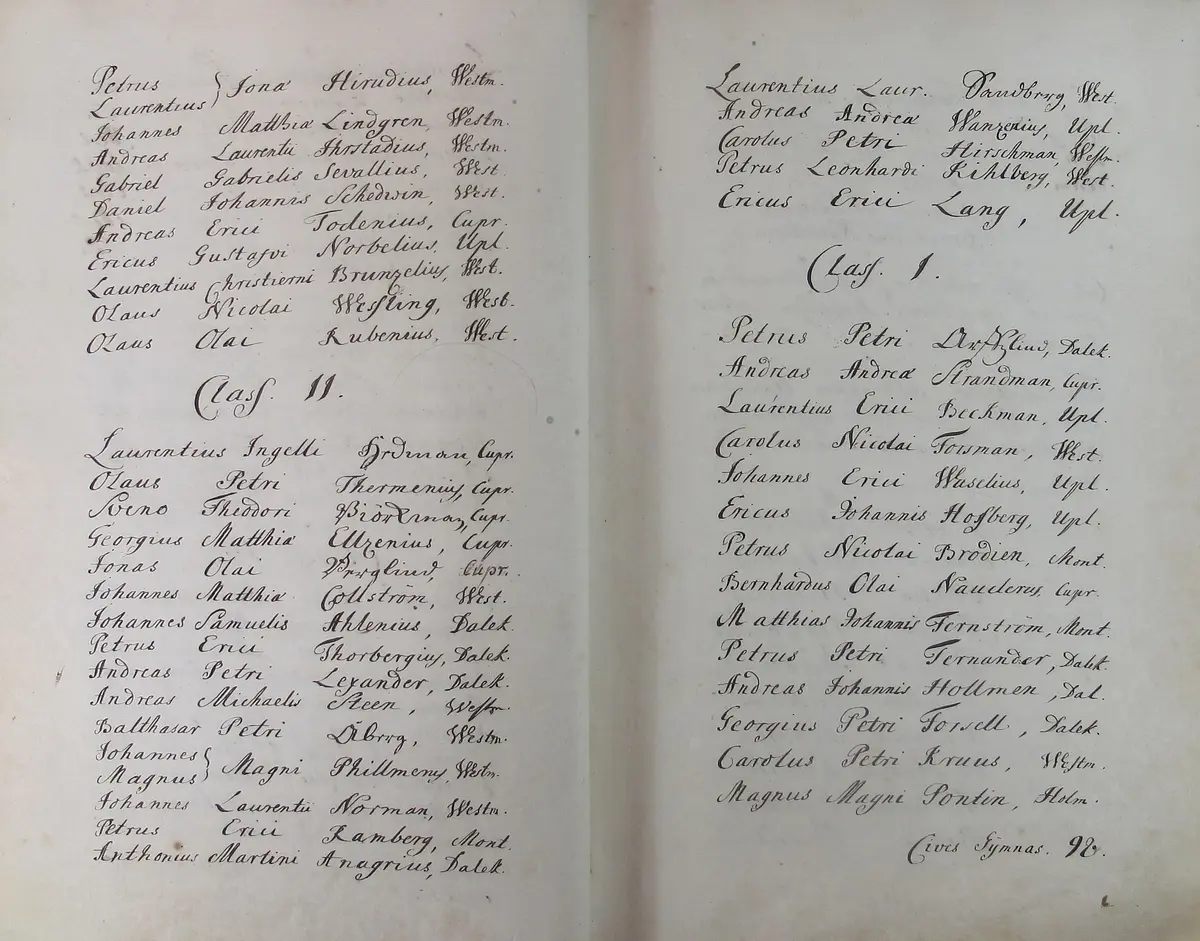 Petrus } Jonæ Hirudius, Westm.
Laurentius
Johannes Matthiæ Lindgren, Westm.
Andreas Laurentii Ihrstadius, Westm.
Gabriel Gabrielis Sevallius, West.
Daniel Johannis Schedwin, West.
Andreas Erici Todenius, Cupr.
Ericus Gustavi Norbelius, Upl.
Laurentius Christierni Brunzelius, West.
Olaus Nicolai Wessling, West.
Olaus Olai Rubenius, West.
Class. II.
Laurentius Ingelli Hedman, Cupr.
Olaus Petri Thermenius, Cupr.
Sveno Theodori Biörkman, Cupr.
Georgius Matthiæ Elfzenius, Cupr.
Jonas Olai Berglind, Cupr.
Johannes Matthiæ Collström, West.
Johannes Samuelis Ahlenius, Dalek.
Petrus Erici Thorbergius, Dalek.
Andreas Petri Lexander, Dalek.
Andreas Michaelis Steen, Westm.
Balthasar Petri Åberg, Westm.
Johannes } Magni Phillmenus, Westm.
Magnus
Johannes Laurentii Norman, Westm.
Petrus Erici Ramberg, Mont.
Anthonius Martini Anagrius, Dalek.
Laurentius Laur. Sandberg, West.
Andreas Andreæ Wanzenius, Upl.
Carolus Petri Hirschman, Westm.
Petrus Leonhardi Kihlberg, West.
Ericus Erici Lang, Upl.
Class. I.
Petrus Petri Dalek.
Andreas Andreæ Strandman, Cupr.
Laurentius Erici Beckman, Upl.
Carolus Nicolai Forsman, West.
Johannes Erici Waselius, Upl.
Ericus Johannis Hofberg, Upl.
Petrus Nicolai Brodien, Mont.
Bernhardus Olai Nauclerus, Cupr.
Matthias Johannis Fernström, Mont.
Petrus Petri Fernander, Dalek.
Andreas Johannis Hollmen, Dal.
Georgius Petri Forsell, Dalek.
Carolus Petri Kruus, Westm.
Magnus Magni Pontin, Holm.
Cives Gymnas. 98.